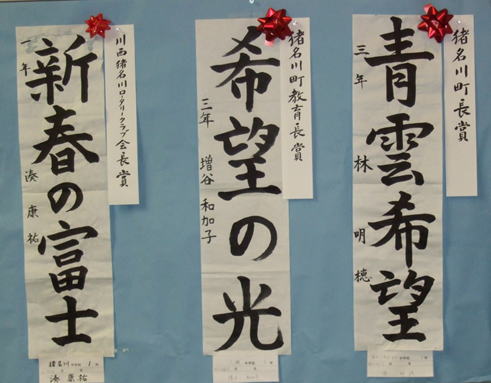 猪名川町長賞
青雲希望
三年 林 明穂
猪名川町教育長賞
希望の光
三年 増谷 和加子
川西猪名川ロータリークラブ会長賞
新春の富士
一年 湊 康祐
猪名川
湊 康祐